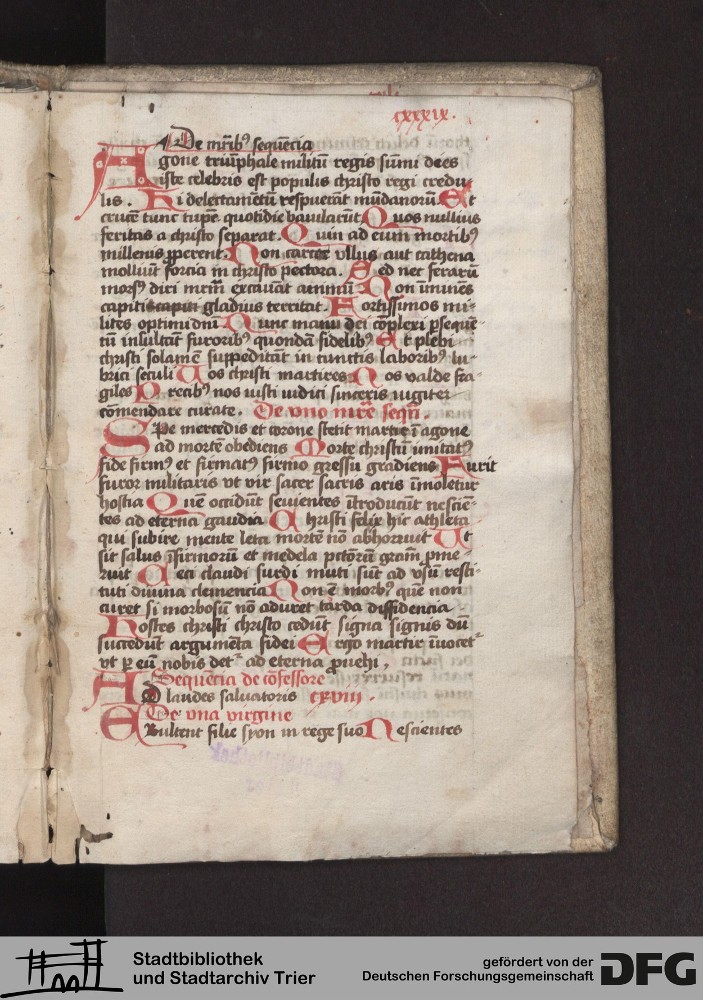 cxxxix.
De mr̄ibꝰ sequēcia
Agone triūphale militū regis sūmi dees
iste celebris est populis christo regi credu
lis. Hi delectamētū respuerāt mūdanorū. Et
crucē tunc turpē quotidie baiularūt. Quos nullius
feritas a christo separat. Quin ad eum mortibꝰ
millenis ꝓperent. Non carcer vllus aut cathena
molliūt forcia in christo pectora. Sed nec ferarū
morsꝰ diri mr̄m excauāt animū Non īminēs
capiti gladius territat. Fortissimos mi-
lites optimi dn̄i. Nunc manu dei cōplexi ꝑsequē-
tū insultāt furoribꝰ quondā fidelibꝰ Et plebi
christi solamē suppeditāt in cunctis laboribꝰ lu-
brici seculi Vos christi martires Nos valde fra-
giles Precibꝰ nos iusti iudici sinceris iugiter
cōmendare curate. De vno mr̄e seqn̄.
Spe mercedis et corone stetit martir ī agone
ad mortē obediens Morte christū imitatꝰ
fide firmꝰ et firmatꝰ firmo gressu gradiens Furit
furor militaris vt vir sacer sacris aris īmoletur
hostia Quē occidūt seuientes ītroducūt nescīē-
tes ad eterna gaudia Christi felix hic athleta
qui subire mente leta mortē nō abhorruit Vt
sit salus īfirmorū et medela pctōrū gr̄am ꝓme-
ruit Ceci claudi surdi muti sūt ad vsū resti-
tuti diuina clemencia Non ē morbꝰ quē non
curet si morbosū nō aduret tarda diffidencia
Hostes christi christo cedūt signa signis dū
succedūt argumēta fidei Ergo martir īuocetᷣ
vt ꝑ eū nobis detᷣ ad eterna ꝓuehi,
Sequēcia de cōfessore
AD laudes saluatoris cxviii.
De vna virgine
EXultent filie syon in rege suo Nescientes
Stadtbibliothek
und Stadtarchiv Trier
gefördert von der
Deutschen Forschungsgemeinschaft
DFG